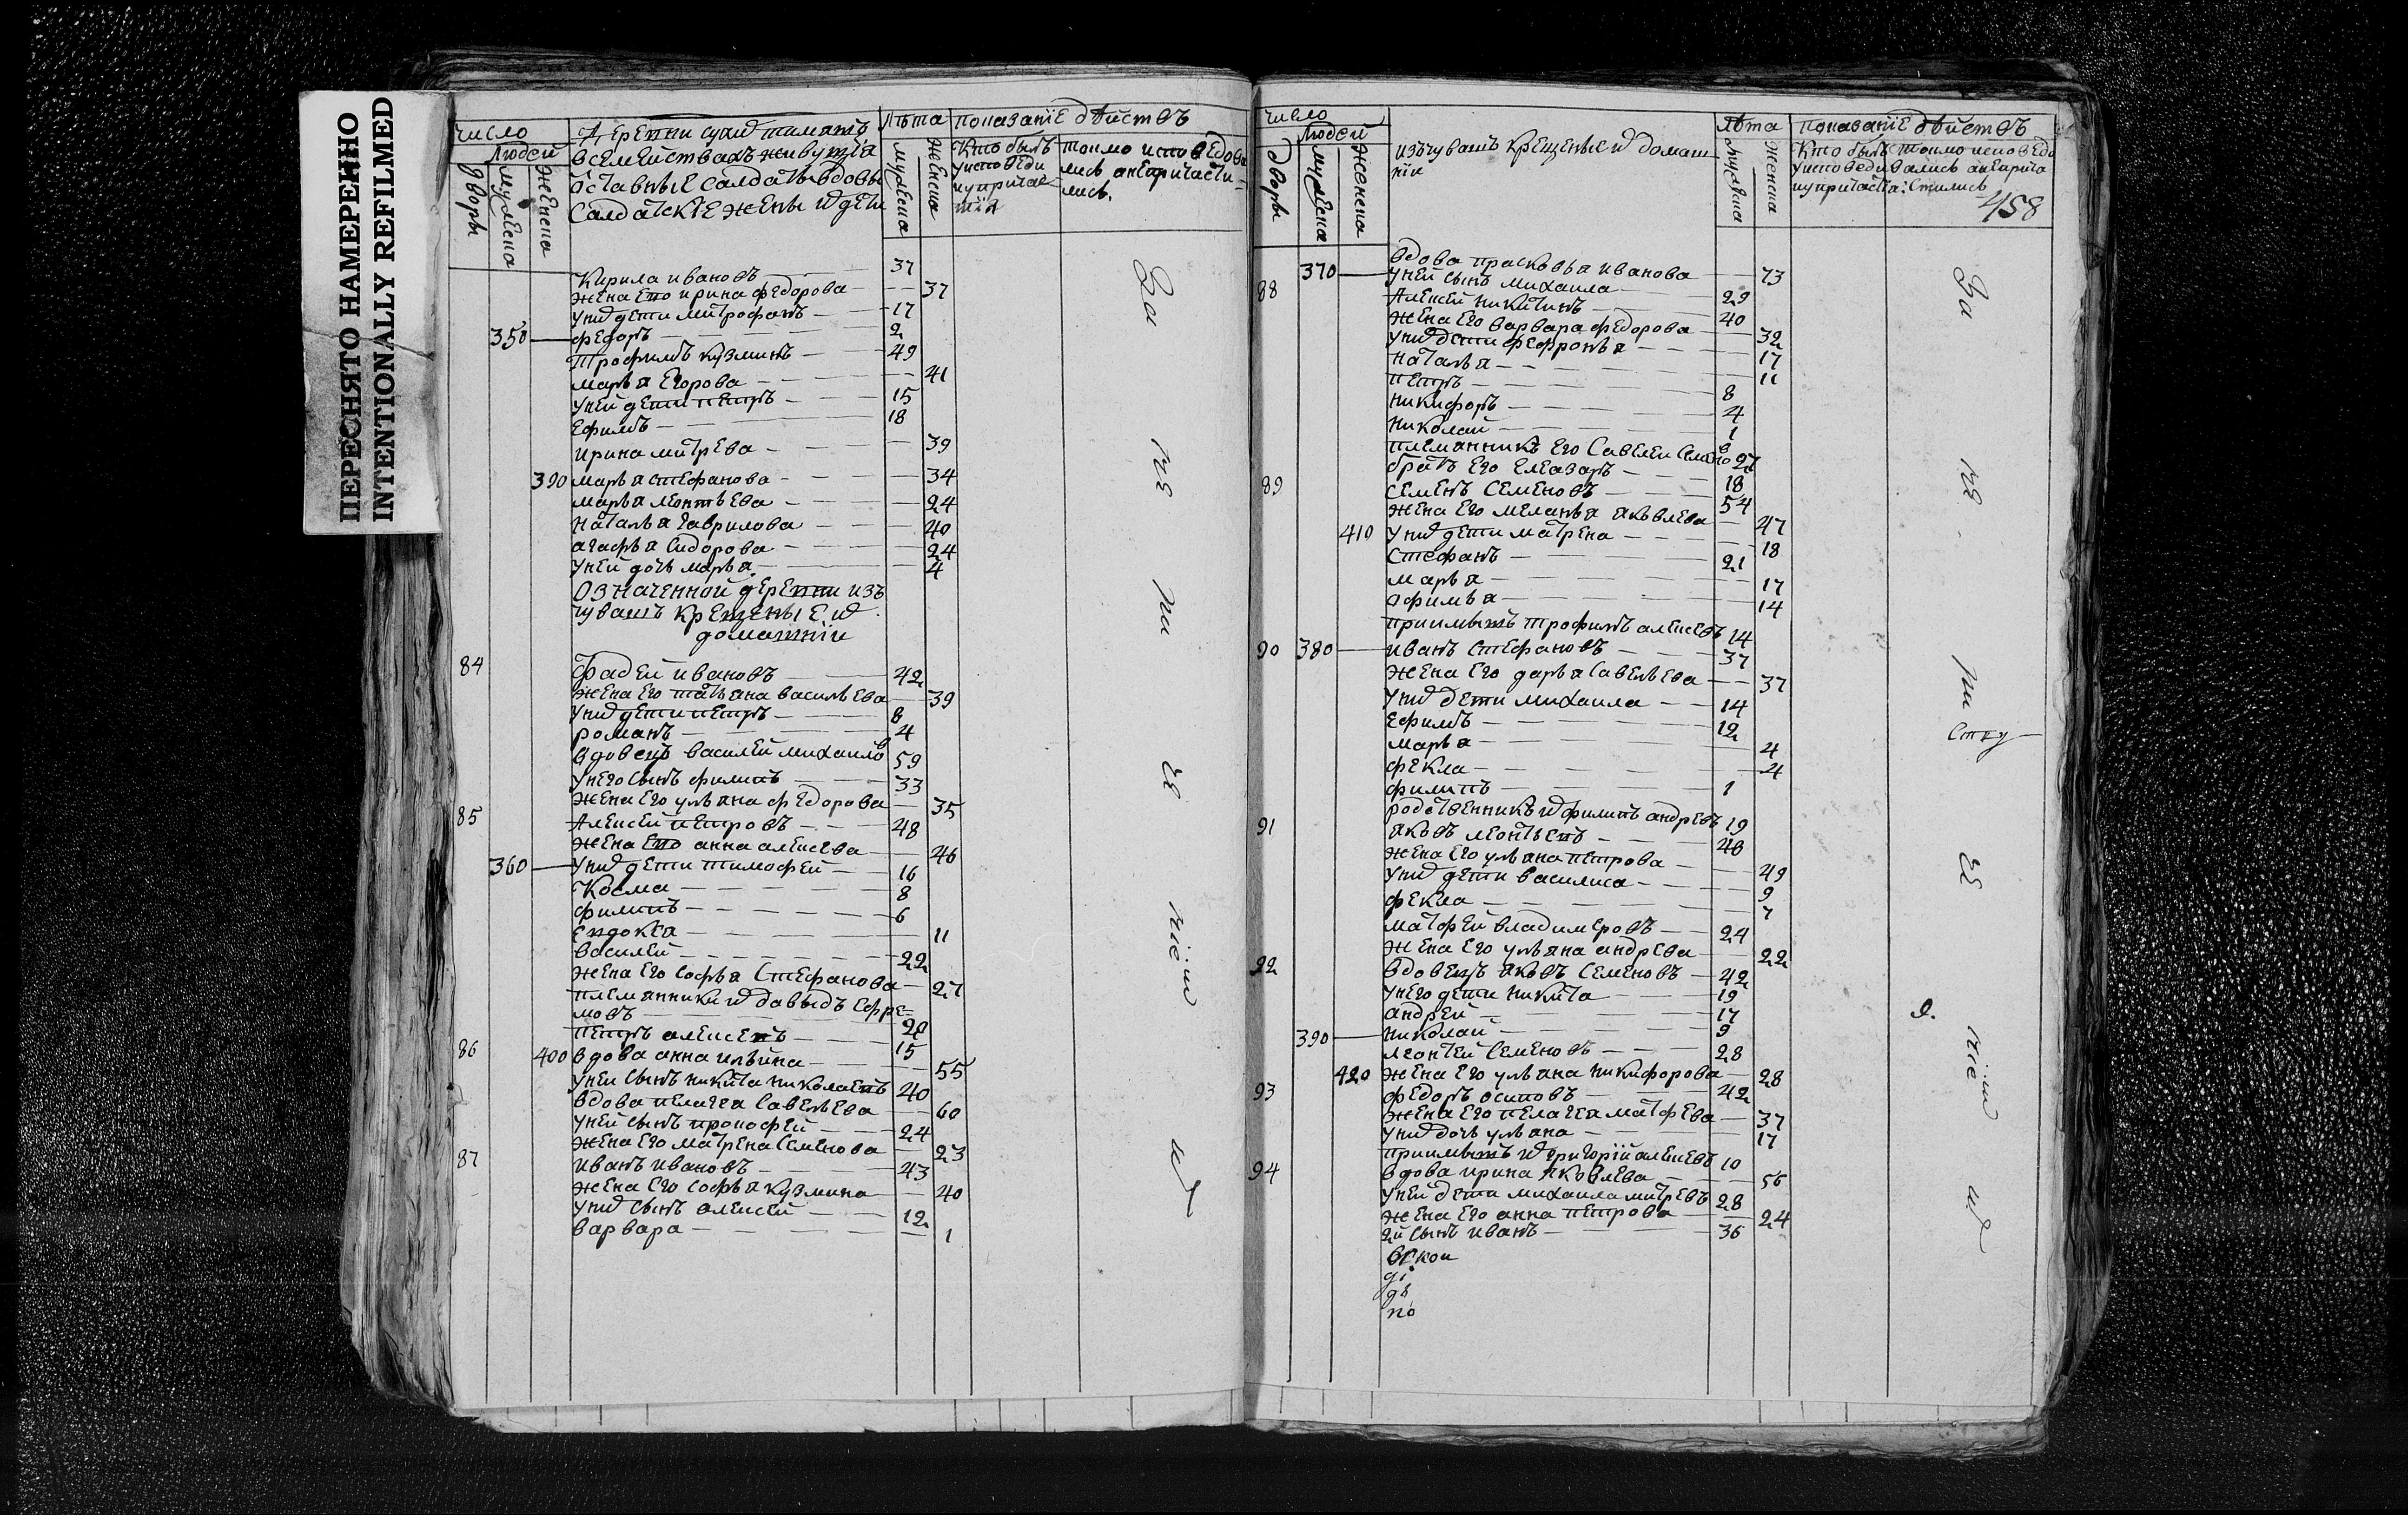 ПЕРЕСНЯТО НАМЕРЕННО
INTENTIONALLY REFILMED
число
людей
дворы
мужеска
женска
всемействахъ живутїа
ѻставные салдаты вдовы
салдатскїе жены и дети
лѣта
мужеска
женска
показанїе дѣйствъ
кто былъ
уисповеди
ипричас-
тїя
токмо исповедова
лись анепричасти-
лись.
кирила ивановъ 37
жена его ирина федорова 37
унихдети митрофанъ 17
350 федоръ 2
трофимъ кузминъ 49
марья егорова 41
уней дети петръ 15
ефимъ 18
ирина митрева 39
390 марья стефанова 34
марья леонтьева 24
наталья гаврилова 40
агафья сидорова 24
уней дочь марья 4
Означенной деревни изъ
чувашъ крещеные и
домашнїи
84 фадей ивановъ 42
жена его татьяна васильева 39
унихдети петръ 8
романъ 4
вдовецъ василей михаиловъ 59
унегосынъ филипъ 33
жена его ульяна федорова 35
85 алексей петровъ 48
жена его анна алексева 46
360 унихдети тимофей 16
косма 8
филипъ 6
евдокея 11
василей 22
жена его софья стефанова 27
племянники ихъ давыдъ ефре=
мовъ 20
петръ алексевъ 15
86 400 вдова анна ильина 55
уней сынъ никита николаевъ 40
вдова пелагея савельева 60
уней сынъ прокофей 24
жена его матрена семенова 23
87 иванъ ивановъ 43
жена его софья кузмина 40
унихсынъ алексей 12
варвара 1
За
не
ни
е
нїем
число
людей
дворы
мужеска
женска
изъчувашъ крещеные и домаш
нїи
лѣта
мужеска
женска
показанїе дѣйствъ
кто былъ
уисповеди
ипричастїа:
токмо исповедо
вались анеприча
стились
458
370 вдова прасковья иванова 73
уней сынъ михаила 29
88 алексей никитинъ 40
жена его варвара федорова 32
унихдети фефронья 17
наталья 11
петръ 8
никифоръ 4
николай 1
племянникъ его савелей семеновъ 27
братъ его елеазаръ 18
89 семенъ семеновъ 54
жена его меланья яковлева 47
410 унихдети матрена 18
стефанъ 21
марья 17
офимья 14
приимышъ трофимъ алексевъ 14
90 380 иванъ стефановъ 37
жена его дарья савельева 37
унихдети михаила 14
ефимъ 12
марья 4
фекла 4
филипъ 1
родственникъ ихъ филипъ андревъ 19
91 яковъ леонтьевъ 48
жена его ульяна петрова 49
унихдети василиса 9
фекла 7
матфей владимеровъ 24
жена его ульяна андрева 22
92 вдовецъ яковъ семеновъ 42
унего дети никита 19
андрей 17
390 николай 9
леонтей семеновъ 28
420 жена его ульяна никифорова 28
93 федоръ осиповъ 42
жена его пелагея матфева 37
унихдочь ульяна 17
приимышъ ихъ григорїй алексевъ 10
94 вдова ирина яковлева 56
уней дети михаила митревъ 28
жена его анна петрова 24
2й сынъ иванъ 36
За
не
ни
е
нїем